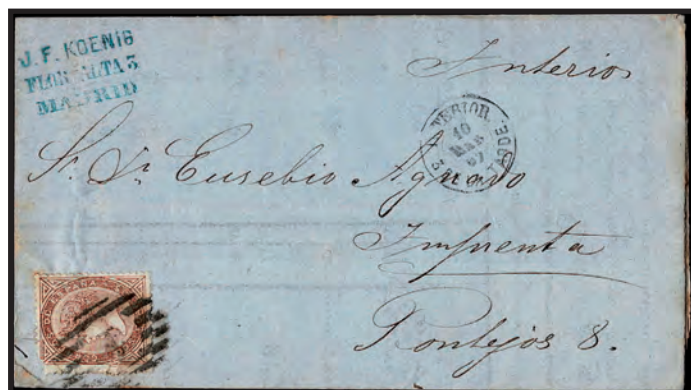 J. F. KOENIG
FLOR ALTA 3
MADRID
Interior
TERIOR
10
MAR
67
Sr. Dn Eusebio Aguado
Imprenta
Pontejos 8.